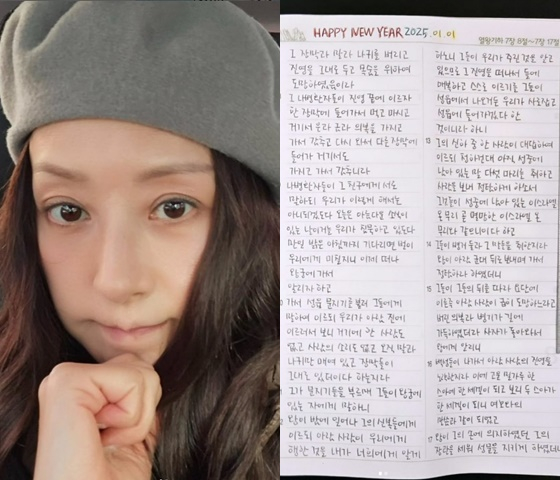 HAPPY NEW YEAR 2025.01.01
열왕기하 7장 8절~7장 17절
그 장막과 말과 나귀를 버리고
진영을 그대로 두고 목숨을 위하여
도망하였음이라
그 나병환자들이 진영 끝에 이르자
한 장막에 들어가서 먹고 마시고
거기서 은과 금과 의복을 가지고
가서 감추고 다시 와서 다른 장막에
들어가 거기서도
가지고 가서 감추니라
나병환자들이 그 친구에게 서로
말하되 우리가 이렇게 해서는
아니되겠도다 오늘은 아름다운 소식이
있는 날이거늘 우리가 침묵하고 있도다
만일 밝은 아침까지 기다리면 벌이
우리에게 미칠지니 이제 떠나
왕궁에 가서
알리자 하고
가서 성읍 문지기를 불러 그들에게
말하여 이르되 우리가 아람 진에
이르러서 보니 거기에 한 사람도
없고 사람의 소리도 없고 오직 말과
나귀만 매여 있고 장막들이
그대로 있더이다 하는지라
그가 문지기들을 부르매 그들이 왕궁에
있는 자에게 말하니
왕이 밤에 일어나 그의 신복들에게
이르되 아람 사람이 우리에게
행한 것을 내가 너희에게 알게
하노니 그들이 우리가 주린 것을 알고
있으므로 그 진영을 떠나서 들에
매복하고 스스로 이르기를 그들이
성읍에서 나오거든 우리가 사로잡고
성읍에 들어가겠다 한
것이니라 하니
13 그의 신하 중 한 사람이 대답하여
이르되 청하건대 아직 성중에
남아 있는 말 다섯 마리를 취하고
사람을 보내 정탐하게 하소서
그것들이 성중에 남아 있는 이스라엘
온 무리 곧 멸망한 이스라엘 온
무리와 같으니이다 하고
14 그들이 병거 둘과 그 말들을 취한지라
왕이 아람 군대 뒤로 보내며 가서
정탐하라 하였더니
15 그들이 그들의 뒤를 따라 요단에
이른즉 아람 사람이 급히 도망하느라고
버린 의복과 병기가 길에
가득하였더라 사자가 돌아와서
왕에게 알리니
16 백성들이 나가서 아람 사람의 진영을
노략한지라 이에 고운 밀가루 한
스아에 한 세겔이 되고 보리 두 스아가
한 세겔이 되니 여호와의
말씀과 같이 되었고
17 왕이 그의 손에 의지하였던 그의
장관을 세워 성문을 지키게 하였더니